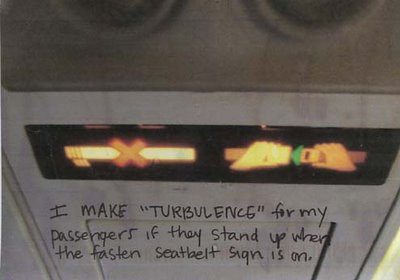 I MAKE "TURBULENCE" for my
passengers if they stand up when
the fasten seatbelt sign is on.